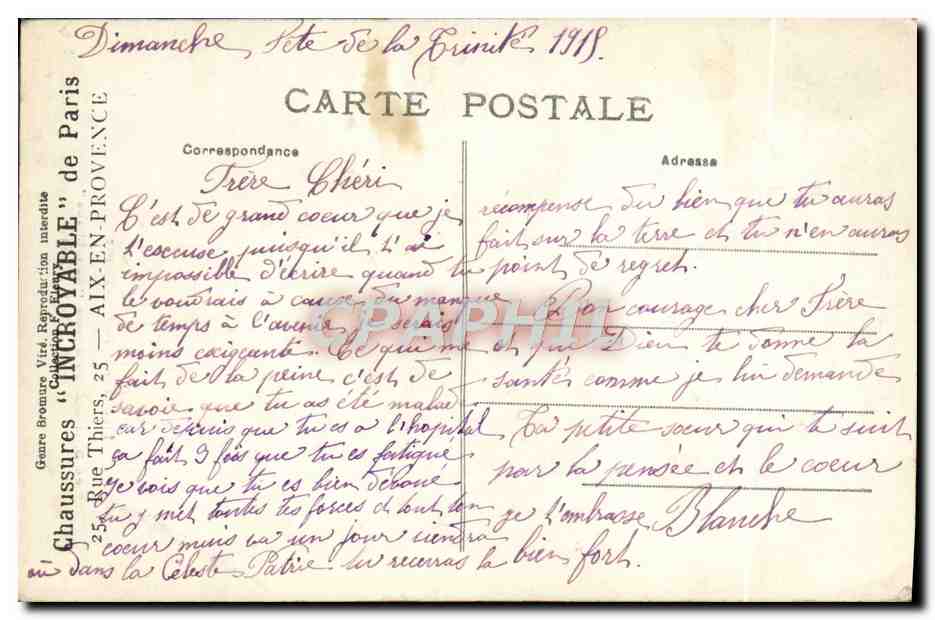 Dimanche, Fête de la Trinité 1918.
CARTE POSTALE
Correspondance
Adresse
Frère Chéri
C'est de grand coeur que je
t'escuse puisqu'il t'ai
impossible d'écrire quand tu
le voudrais à cause du manque
de temps à l'avenir je serais
moins exigeante. Ce qui me
fait de la peine c'est de
savoir que tu as été malad
car depuis que tu es à l'hopital
ça fait 3 fois que tu es fatigué
je vois que tu es bien dévoué
tu y met toutes tes forces et tout ton
coeur mais va un jour viendra
où dans la Céleste Patrie tu recevras la
récompense du bien que tu auras
fait sur la terre et tu n'en auras
point de regret.
Bon courage cher Frère
et que Dieu te donne la
santé comme je lui demande
Ta petite soeur qui te suit
par la pensée et le coeur
je t'embrasse Blanche
bien fort.
Genre Bromure Viré. Reproduction interdite
Collection F. Fleury
Chaussures "INCROYABLE" de Paris
25, Rue Thiers, 25 — AIX-EN-PROVENCE
CPAPHIL